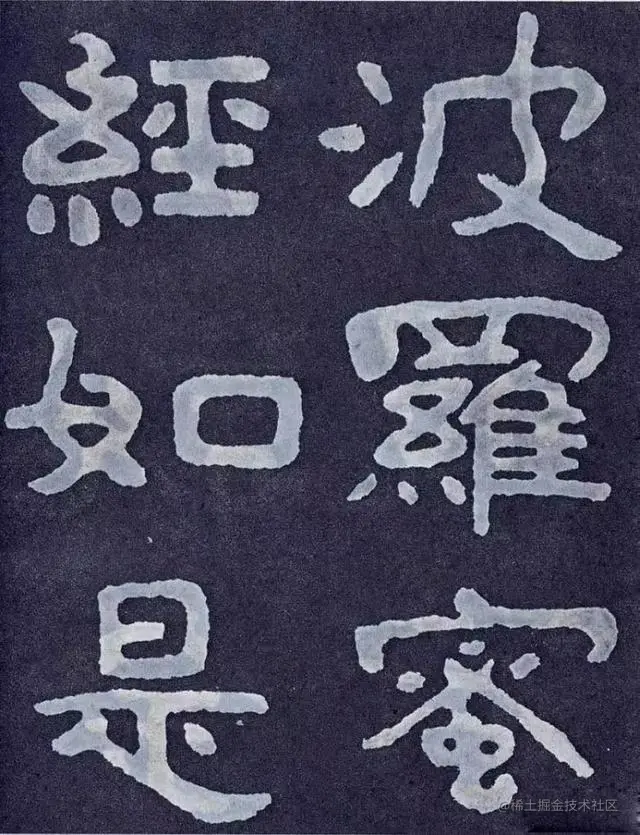 波羅蜜
經如是
@稀土掘金技术社区